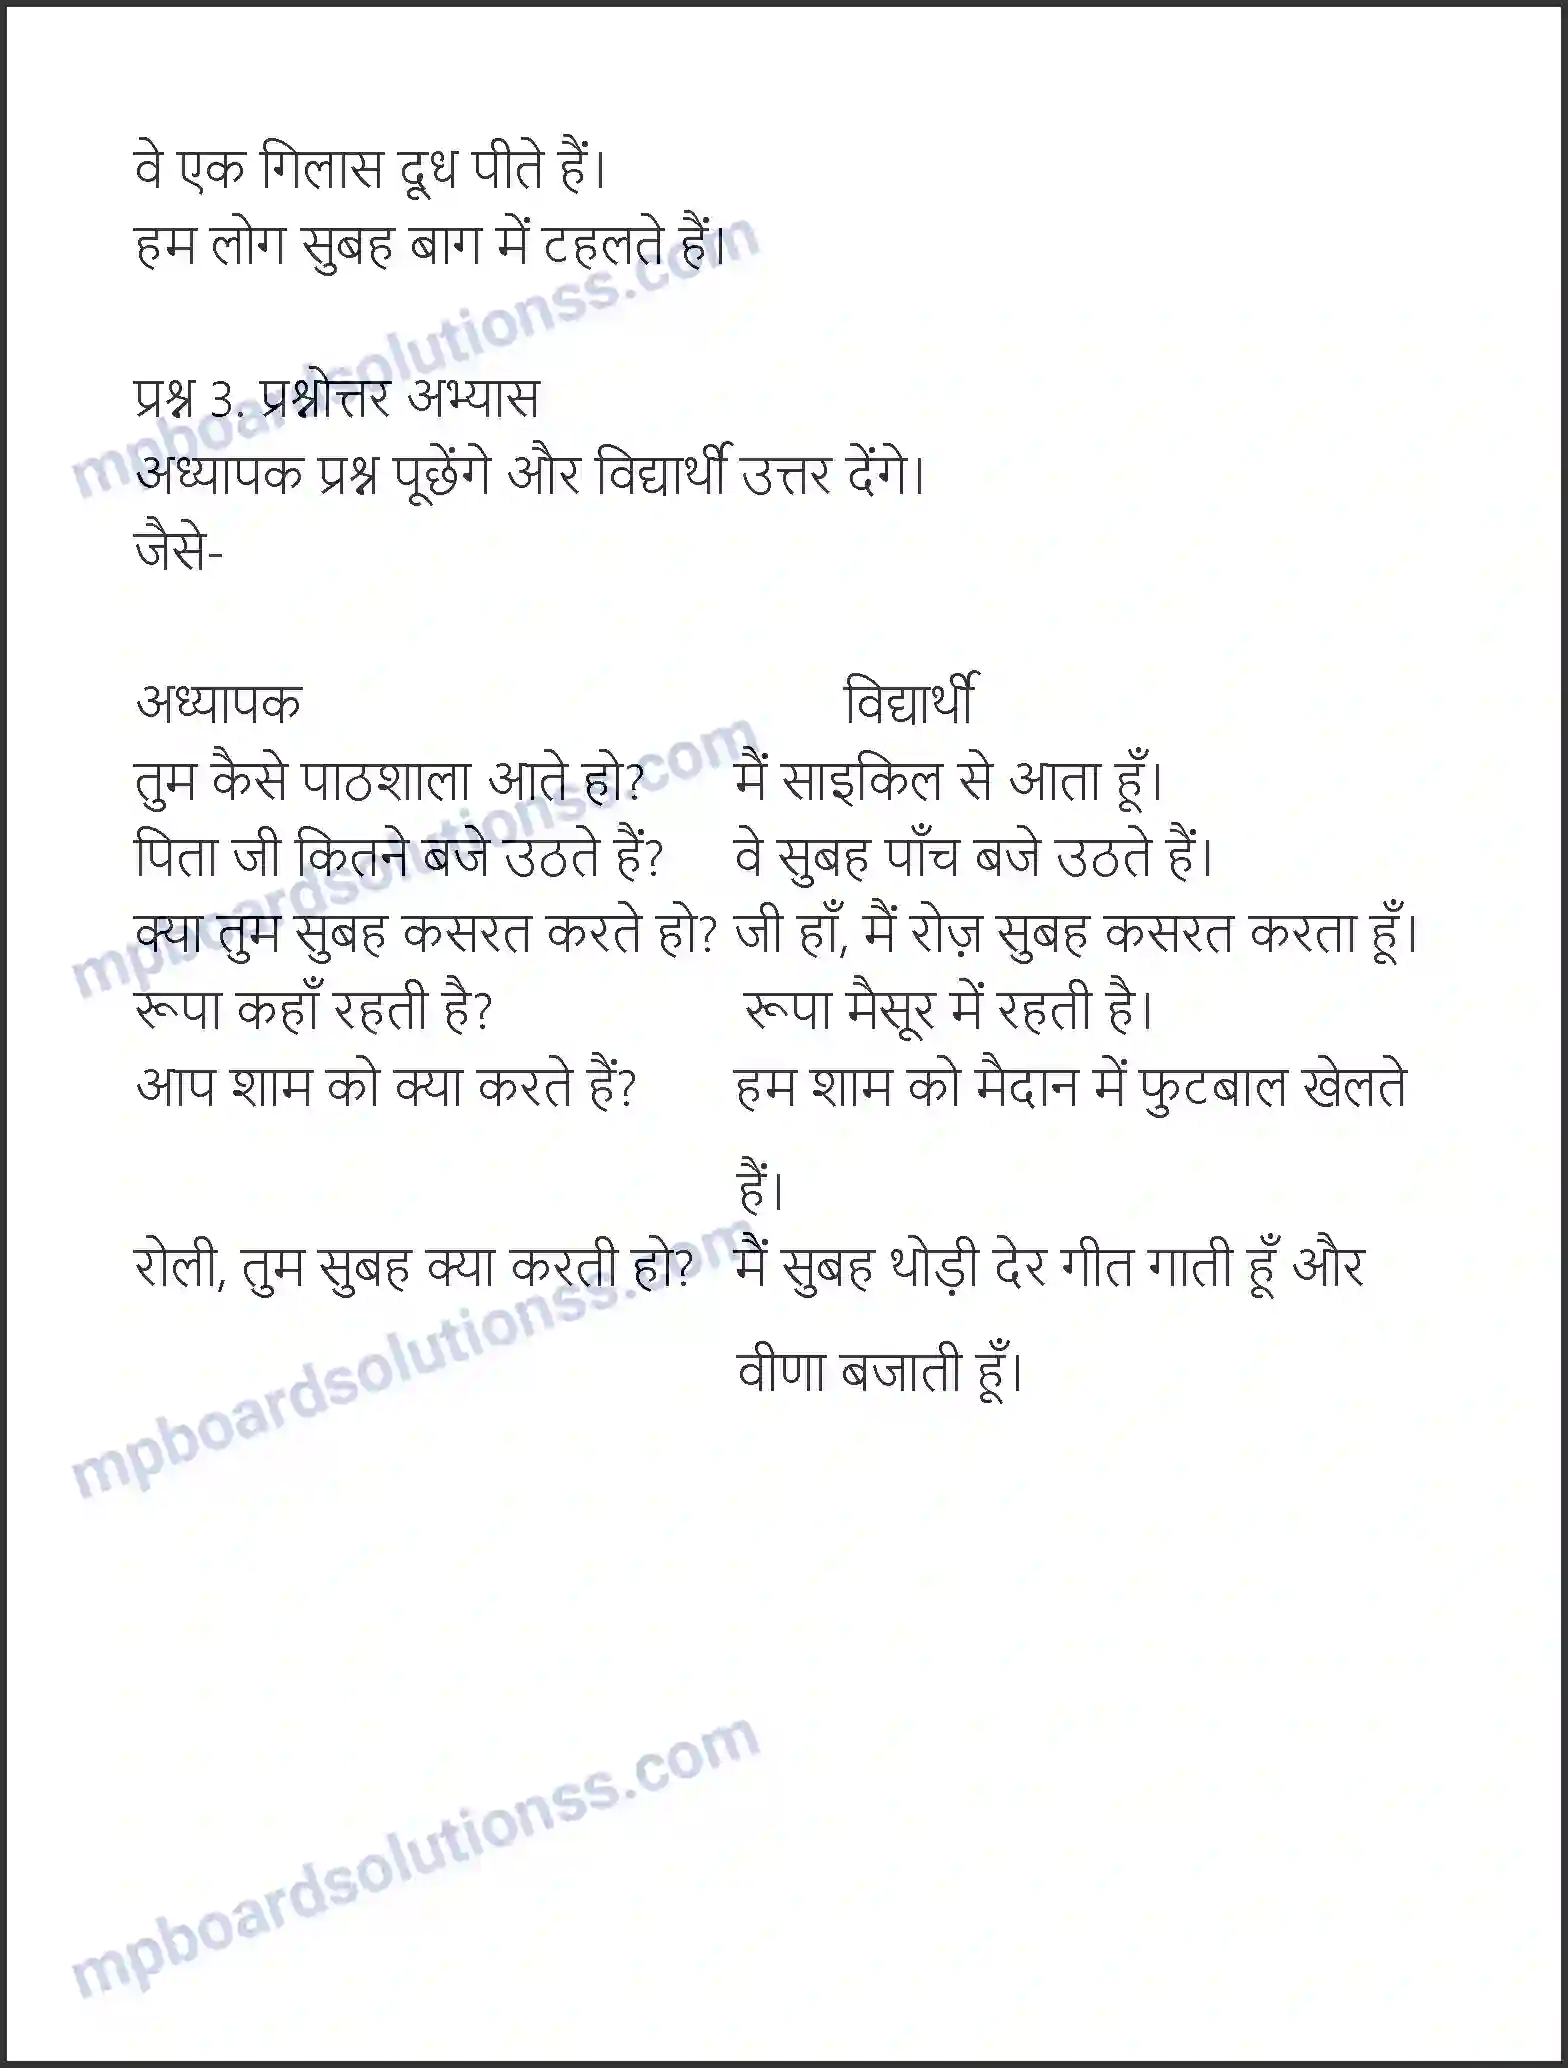 वे एक गिलास दूध पीते हैं।
हम लोग सुबह बाग में टहलते हैं।
प्रश्न 3. प्रश्नोत्तर अभ्यास
अध्यापक प्रश्न पूछेंगे और विद्यार्थी उत्तर देंगे।
जैसे-
अध्यापक विद्यार्थी
तुम कैसे पाठशाला आते हो? मैं साइकिल से आता हूँ।
पिता जी कितने बजे उठते हैं? वे सुबह पाँच बजे उठते हैं।
क्या तुम सुबह कसरत करते हो? जी हाँ, मैं रोज़ सुबह कसरत करता हूँ।
रूपा कहाँ रहती है? रूपा मैसूर में रहती है।
आप शाम को क्या करते हैं? हम शाम को मैदान में फुटबाल खेलते
हैं।
रोली, तुम सुबह क्या करती हो? मैं सुबह थोड़ी देर गीत गाती हूँ और
वीणा बजाती हूँ।
mpboardsolutionss.com
mpboardsolutionss.com
mpboardsolutionss.com
mpboardsolutionss.com